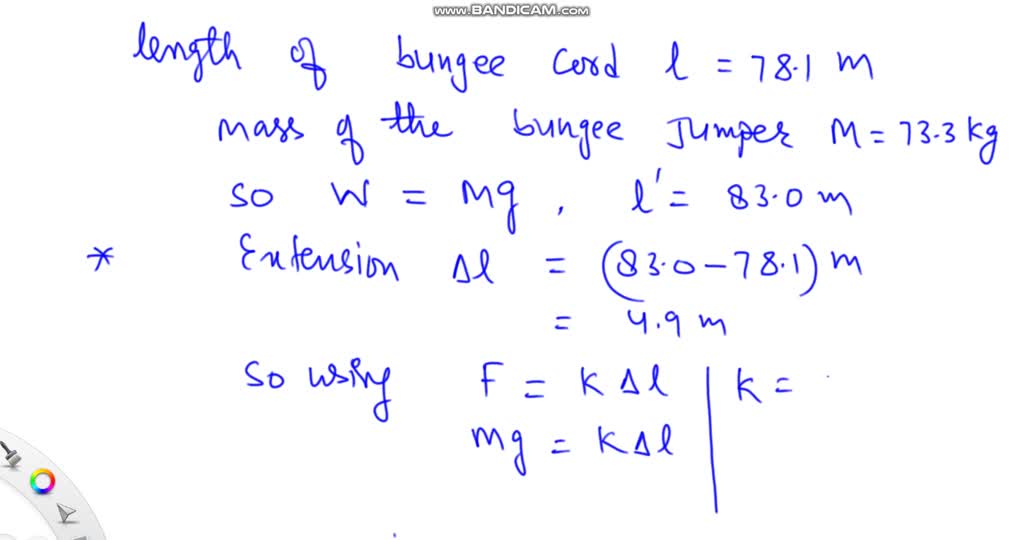 www.BANDICAM.com
length of bungee cord l = 78.1 m
mass of the bungee Jumper M = 73.3 kg
so W = Mg , l' = 83.0 m
* Extension Δl = (83.0 - 78.1) m
= 4.9 m
So using F = K Δl | K =
mg = K Δl